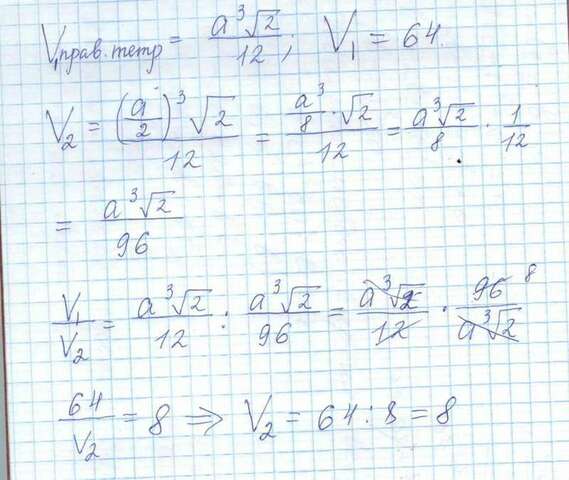 V₁прав.тетр = a³√2/12; V₁ = 64.
V₂ = (a/2)³√2/12 = a³/8 · √2/12 = a³√2/8 · 1/12
= a³√2/96
V₁/V₂ = a³√2/12 : a³√2/96 = a³√2/12 · 96/a³√2 8
64/V₂ = 8 ⇒ V₂ = 64 : 8 = 8